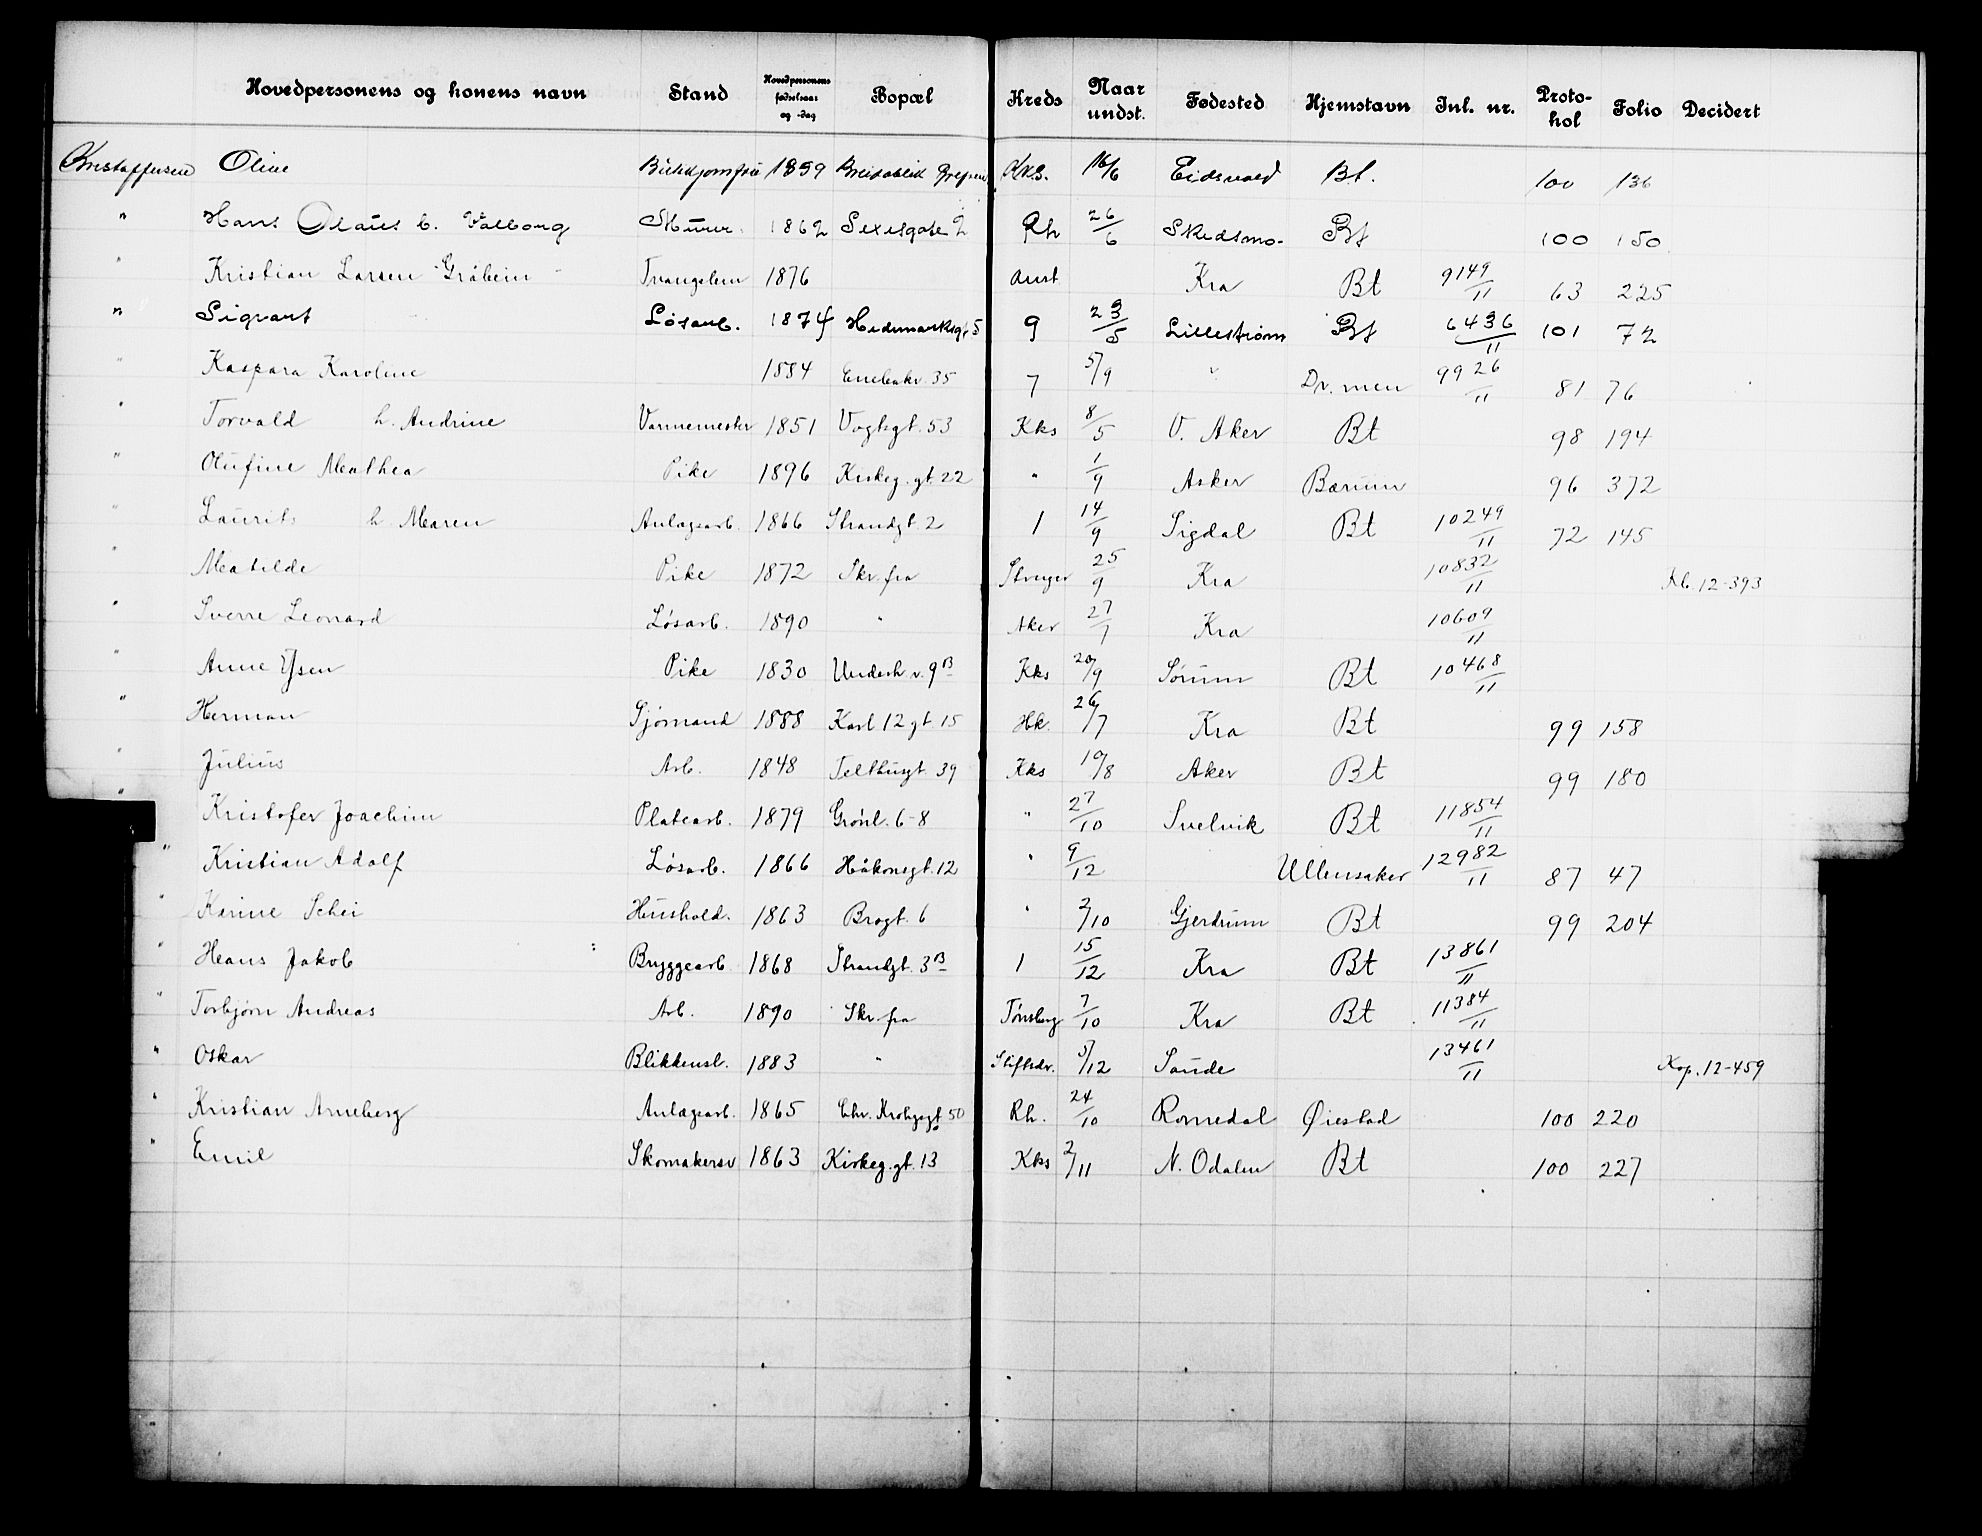 Hovedpersonens og konens navn Stand Hovedpersonens fødselsaar og -dag Bopæl Kreds Naar undst. Fødested Hjemstavn Inl. nr. Proto-kol Folio Decidert
Kristoffersen Oline 1859 Breidablik Grefsen Kks. 16/6 Eidsvold Bt. 100 136
" Hans Olaus h. Valborg Murer 1862 Sexesgate 2 Rh 26/6 Skedsmo Bt 100 150
" Kristian Larsen Gråbein Tvangslem 1876 Anst Kra Bt 9149/11 63 225
" Sigvart Løsarb. 1874 Hedemarksgt 5 9 23/5 Lillestrøm Bt 6436/11 101 72
" Kaspara Karoline 1884 Enebakv. 35 7 5/9 " Dr.men 9926/11 81 76
" Torvald h. Andrine Varmemester 1851 Vogtsgt. 53 Kks 8/5 V. Aker Bt 98 194
" Olufine Mathea Pike 1896 Kirkeg.gt. 22 " 1/9 Asker Bærum 96 372
" Laurits h. Maren Anlægsarb. 1866 Strandgt. 2 1 14/9 Sigdal Bt 10249/11 72 145
" Matilde Pike 1872 Skr. fra 25/9 Kra 10832/11 Kb. 12-393
" Sverre Leonard Løsarb. 1890 " Aker 27/7 Kra 10609/11
" Anne Pike 1830 Underh.v. 9B Kks 20/9 Sørum Bt 10468/11
" Herman Sjømand 1888 Karl 12 gt. 15 Hk. 26/7 Kra Bt 99 158
" Julius Arb. 1848 Telthusgt. 39 Kks 10/8 Aker Bt 99 180
" Kristofer Joachim Platearb. 1879 Grønl. 6-8 " 27/10 Svelvik Bt 11854/11
" Kristian Adolf Løsarb. 1866 Håkonsgt. 12 " 9/12 Ullensaker 12982/11 87 47
" Karine Schei Hushold. 1863 Brogt. 6 " 2/10 Gjerdrum Bt 99 204
" Hans Jakob Bryggearb. 1868 Strandgt. 3B 1 15/12 Kra Bt 13861/11
" Torbjørn Andreas Arb. 1890 Skr. fra Tønsberg 7/10 Kra Bt 11384/11
" Oskar Blikkensl. 1883 " Stiftsdir. 5/12 Sande 13461/11 Kop. 12-459
" Kristian Arneberg Anlægsarb. 1865 Chr. Krohgsgt 50 Rh. 24/10 Romedal Øiestad 100 220
" Emil Skomakersv 1863 Kirkeg.gt. 13 Kks 2/11 N. Odalen Bt 100 227